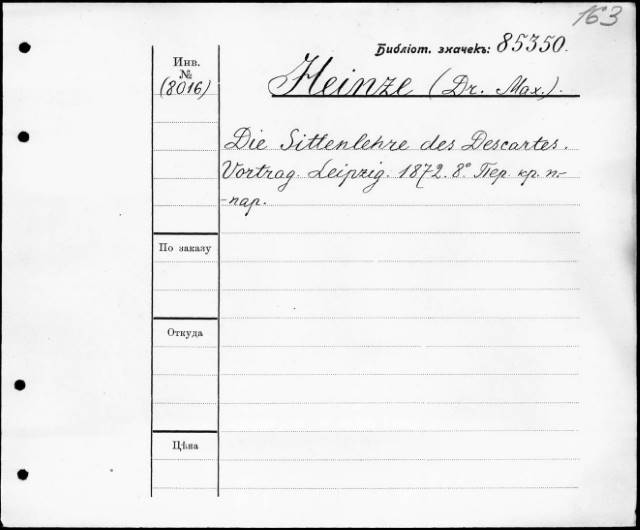 163
Библіот. значекъ: 85350.
Инв.
№
(8016)
Heinze (Dr. Max.).
Die Sittenlehre des Descartes.
Vortrag. Leipzig. 1872. 8° Пер. кр. п.-
-пар.
По заказу
Откуда
Цѣна